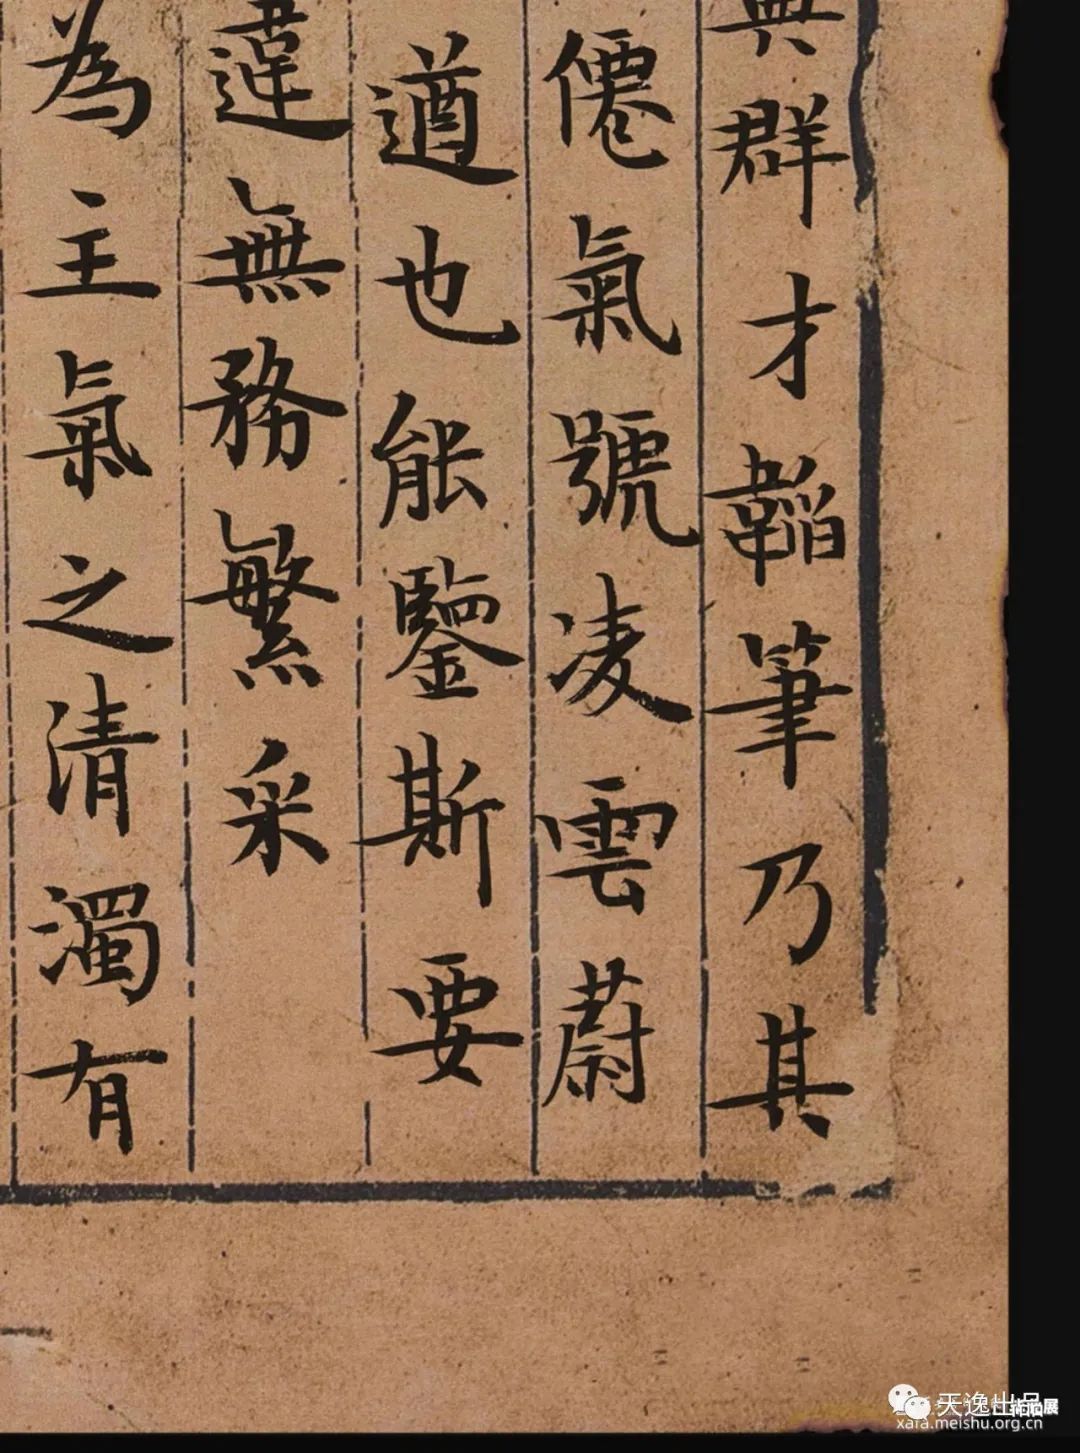 群才韜筆乃其
僊氣號凌雲蔚
遒也能鑒斯要
違無務繁采
為主氣之清濁有
天逸出品
xafa.meishu.org.cn